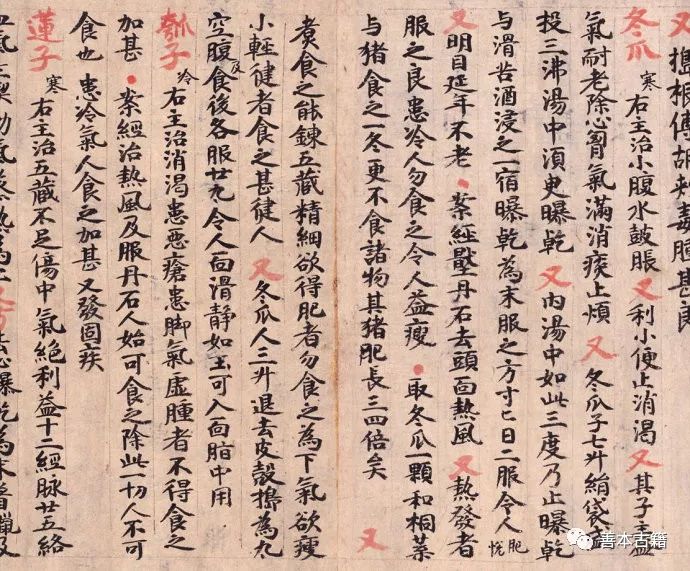 又擣根傅胡刺毒腫甚良
冬瓜寒右主治小腹水鼓脹又利小便止消渴又其子主益
氣耐老除心胷氣滿消痰止煩又冬瓜子七升絹袋盛
投三沸湯中湏臾曝乾又內湯中如此三度乃止曝乾
与清苦酒浸之一宿曝乾為末服之方寸匕日二服令人肥悅
又明目延年不老案經壓丹石去頭面熱風又熱發者
服之良患冷人勿食之令人益瘦取冬瓜一顆和桐葉
与猪食之一冬更不食諸物其猪肥長三四倍矣又
煮食之能鍊五藏精細欲得肥者勿食之為下氣欲瘦
小輕健者食之甚健人又冬瓜人三升退去皮殼擣為丸
空腹及食後各服廿丸令人面滑静如玉可入面脂中用
瓠子冷右主治消渴患惡瘡患脚氣虛腫者不得食之
加甚案經治熱風及服丹石人始可食之除此一切人不可
食也患冷氣人食之加甚又發固疾
蓮子寒右主治五藏不足傷中氣絕利益十二經脉廿五絡
善本古籍